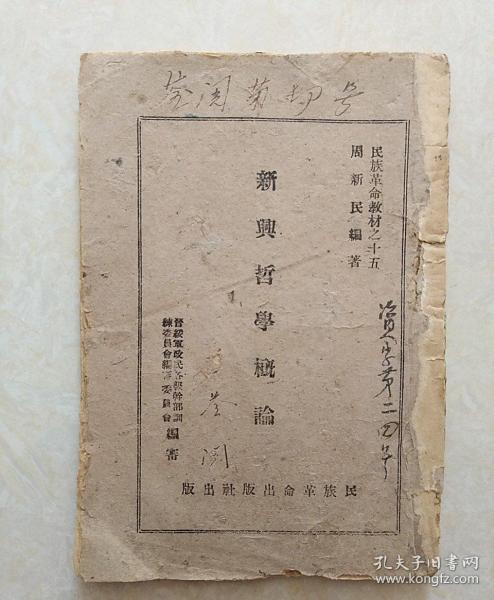 民族革命教材之十五
周新民編著
新興哲學概論
晉綏軍政民各級幹部訓
練委員會編審委員會
編審
民族革命出版社出版
第二四号
孔夫子旧书网
www.kongfz.com